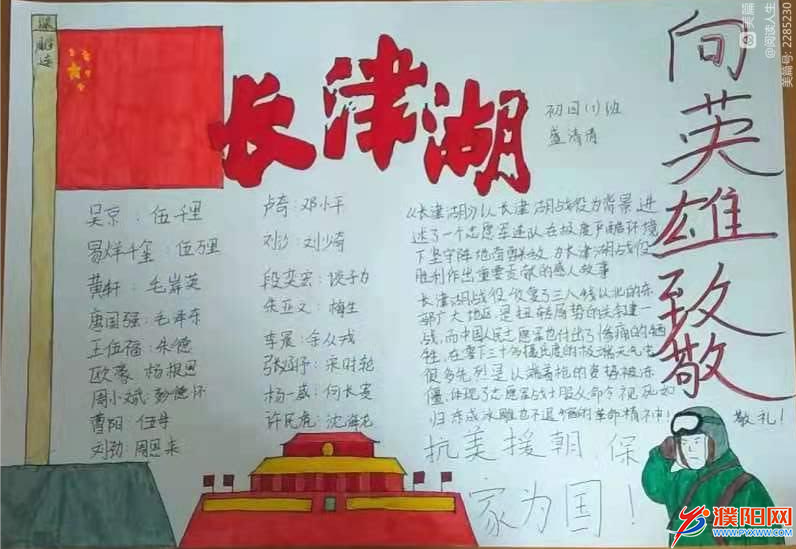 钢铁连
长津湖
初一(1)班
盛清倩
向英雄致敬
吴京：伍千里
易烊千玺：伍万里
黄轩：毛岸英
唐国强：毛泽东
王伍福：朱德
欧豪 杨根思
周小斌：彭德怀
曹阳：伍
刘劲：周恩来
卢奇：邓小平
刘沙：刘少奇
段奕宏：谈子为
朱亚文：梅生
李晨：余从戎
张涵予：宋时轮
杨一威：何长贵
许民虎：沈
《长津湖》以长津湖战役为背景，讲
述了一个志愿军连队在极度严酷环境
下坚守阵地奋勇杀敌，为长津湖战役
胜利作出重要贡献的感人故事
长津湖战役收复了三八线以北的东
部广大地区，是扭转局势的关键一
战，而中国人民志愿军也付出了惨痛的牺
牲，在零下三十多摄氏度的极端天气中
很多先烈是以端着枪的姿势被冻
僵，体现了志愿军战士服从命令视死如
归，冻成冰雕也不退的革命精神！
敬礼！
抗美援朝，保
家为国！
美篇
@阅读人生
美篇号：2285230
濮阳网
WWW.PYXWW.COM